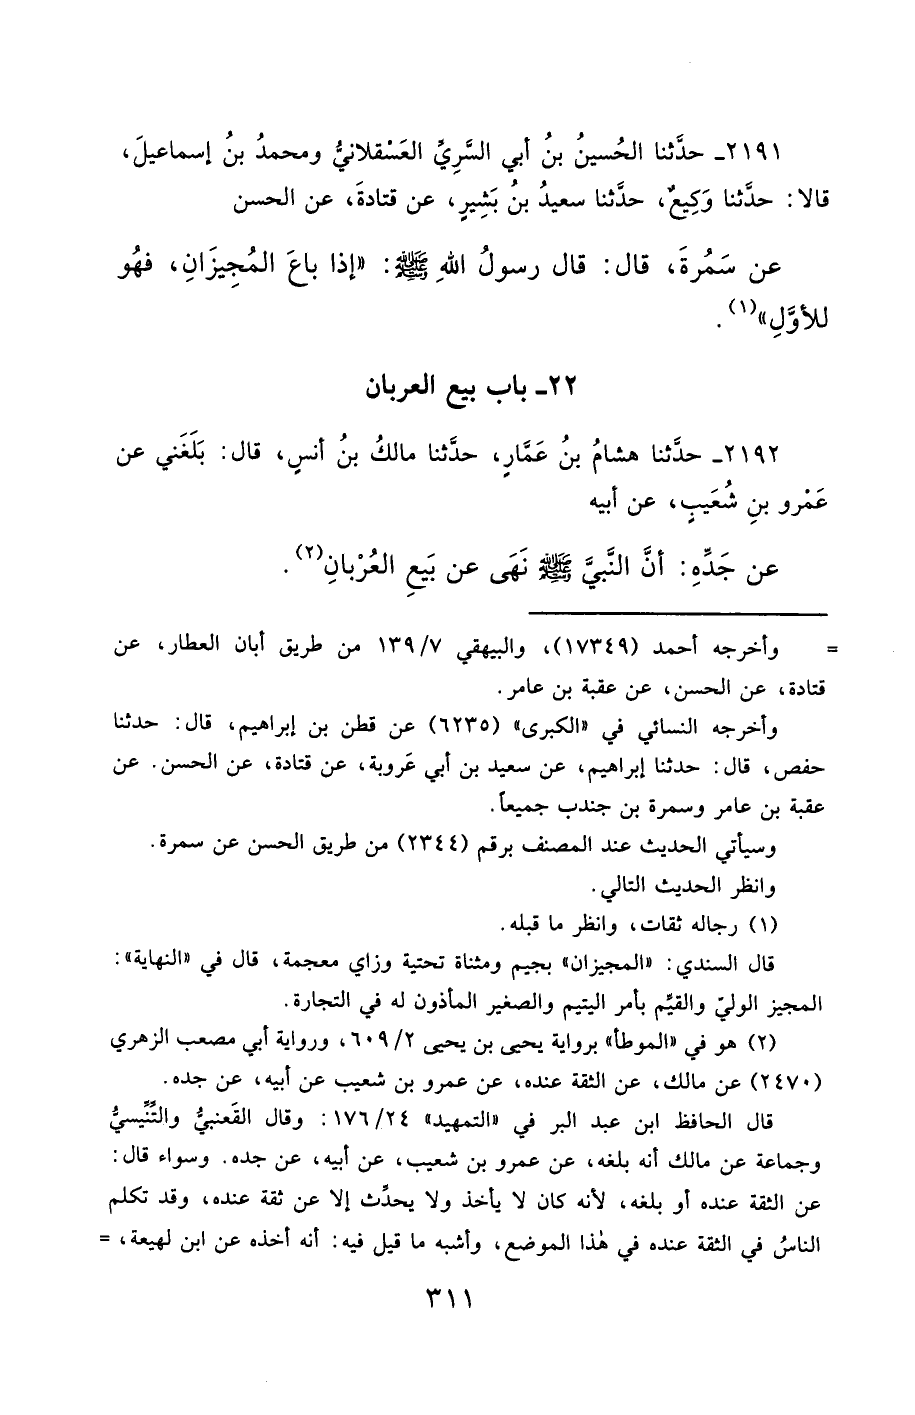 ٢١٩١ـ حدَّثنا الحُسينُ بنُ أبي السَّرِيِّ العَسْقلانيُّ ومحمدُ بنُ إسماعيلَ،
قالا: حدَّثنا وَكِيعٌ، حدَّثنا سعيدُ بنُ بَشِيرٍ، عن قتادةَ، عن الحسن
عن سَمُرةَ، قال: قال رسولُ اللهِ ﷺ: «إذا باعَ المُجِيزَانِ، فهُو
للأوَّلِ»(١).
٢٢ـ باب بيع العربان
٢١٩٢ـ حدَّثنا هشامُ بنُ عَمَّارٍ، حدَّثنا مالكُ بنُ أنسٍ، قال: بَلَغَني عن
عَمْرو بنِ شُعَيبٍ، عن أبيه
عن جَدِّهِ: أنَّ النَّبيَّ ﷺ نَهَى عن بَيعِ العُرْبانِ(٢).
= وأخرجه أحمد (١٧٣٤٩)، والبيهقي ١٣٩/٧ من طريق أبان العطار، عن
قتادة، عن الحسن، عن عقبة بن عامر.
وأخرجه النسائي في «الكبرى» (٦٢٣٥) عن قطن بن إبراهيم، قال: حدثنا
حفص، قال: حدثنا إبراهيم، عن سعيد بن أبي عَروبة، عن قتادة، عن الحسن. عن
عقبة بن عامر وسمرة بن جندب جميعاً.
وسيأتي الحديث عند المصنف برقم (٢٣٤٤) من طريق الحسن عن سمرة.
وانظر الحديث التالي.
(١) رجاله ثقات، وانظر ما قبله.
قال السندي: «المجيزان» بجيم ومثناة تحتية وزاي معجمة، قال في «النهاية»:
المجيز الوليّ والقيِّم بأمر اليتيم والصغير المأذون له في التجارة.
(٢) هو في «الموطأ» برواية يحيى بن يحيى ٦٠٩/٢، ورواية أبي مصعب الزهري
(٢٤٧٠) عن مالك، عن الثقة عنده، عن عمرو بن شعيب عن أبيه، عن جده.
قال الحافظ ابن عبد البر في «التمهيد» ١٧٦/٢٤: وقال القَعنبيُّ والتِّنِّيسيُّ
وجماعة عن مالك أنه بلغه، عن عمرو بن شعيب، عن أبيه، عن جده. وسواء قال:
عن الثقة عنده أو بلغه، لأنه كان لا يأخذ ولا يحدِّث إلا عن ثقة عنده، وقد تكلم
الناسُ في الثقة عنده في هٰذا الموضع، وأشبه ما قيل فيه: أنه أخذه عن ابن لهيعة، =
٣١١